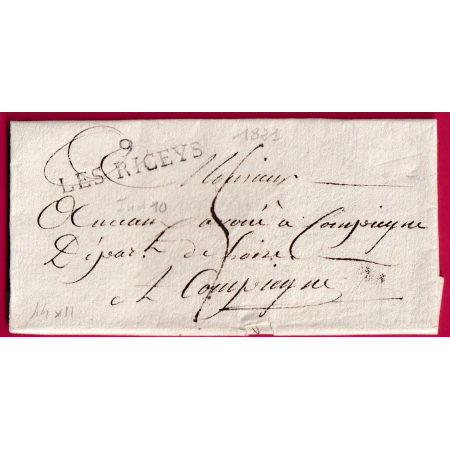 1821
9
LES RICEYS
Monsieur
avoué à Compiegne
Départ. de Loise
A Compiegne
Ind 10
44 x 11